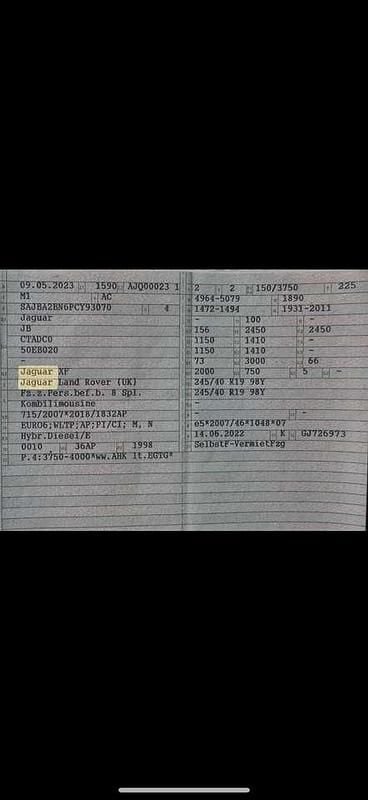 09.05.2023 1590 AJQ00023 1
M1 AC
SAJBA2BN6PCY93070 4
Jaguar
JB
CTADC0
50EB020
-
Jaguar XF
Jaguar Land Rover (UK)
Fz.z.Pers.bef.b. 8 Spl.
Kombilimousine
715/2007*2018/1832AP
EURO6;WLTP;AP;PI/CI; M, N
Hybr.Diesel/E
0010 36AP 1998
P.4:3750-4000*ww.AHK lt.EGTG*
2 2 150/3750 225
4964-5079 1890
1472-1494 1931-2011
- 100 -
156 2450 2450
1150 1410 -
1150 1410 -
73 3000 66
2000 750 5 -
245/40 R19 98Y
245/40 R19 98Y
-
- -
e5*2007/46*1048*07
14.06.2022 K GJ726973
SelbstF-VermietFzg